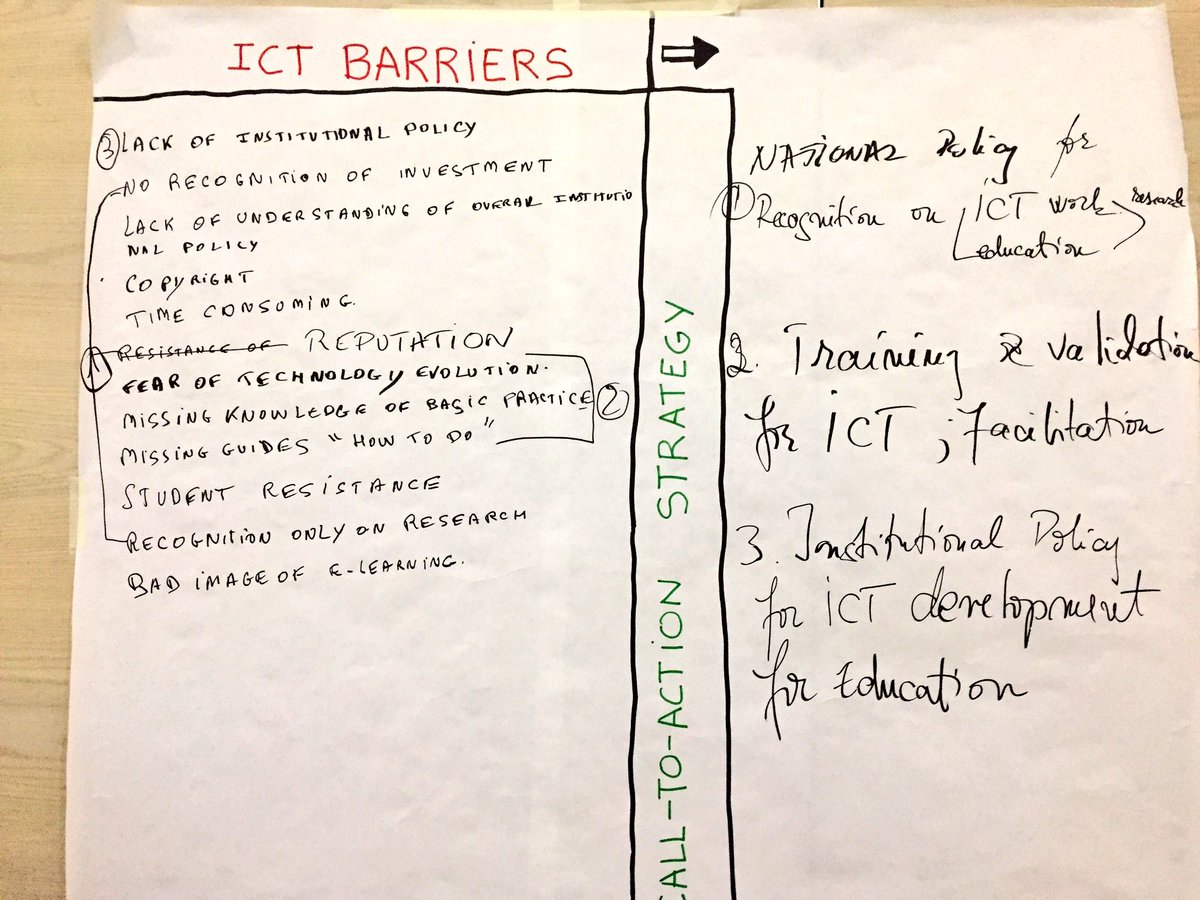 ICT BARRIERS
③ LACK OF INSTITUTIONAL POLICY
NO RECOGNITION OF INVESTMENT
LACK OF UNDERSTANDING OF OVERAL INSTITUTIO
NAL POLICY
COPYRIGHT
TIME CONSUMING.
① RESISTANCE OF REPUTATION
FEAR OF TECHNOLOGY EVOLUTION.
MISSING KNOWLEDGE OF BASIC PRACTICE ②
MISSING GUIDES "HOW TO DO"
STUDENT RESISTANCE
RECOGNITION ONLY ON RESEARCH
BAD IMAGE OF E-LEARNING.
CALL-TO-ACTION STRATEGY
NATIONAL Policy for
① Recognition on ICT work research
education
2. Training & validation
for ICT ; Facilitation
3. Institutional Policy
for ICT development
for Education